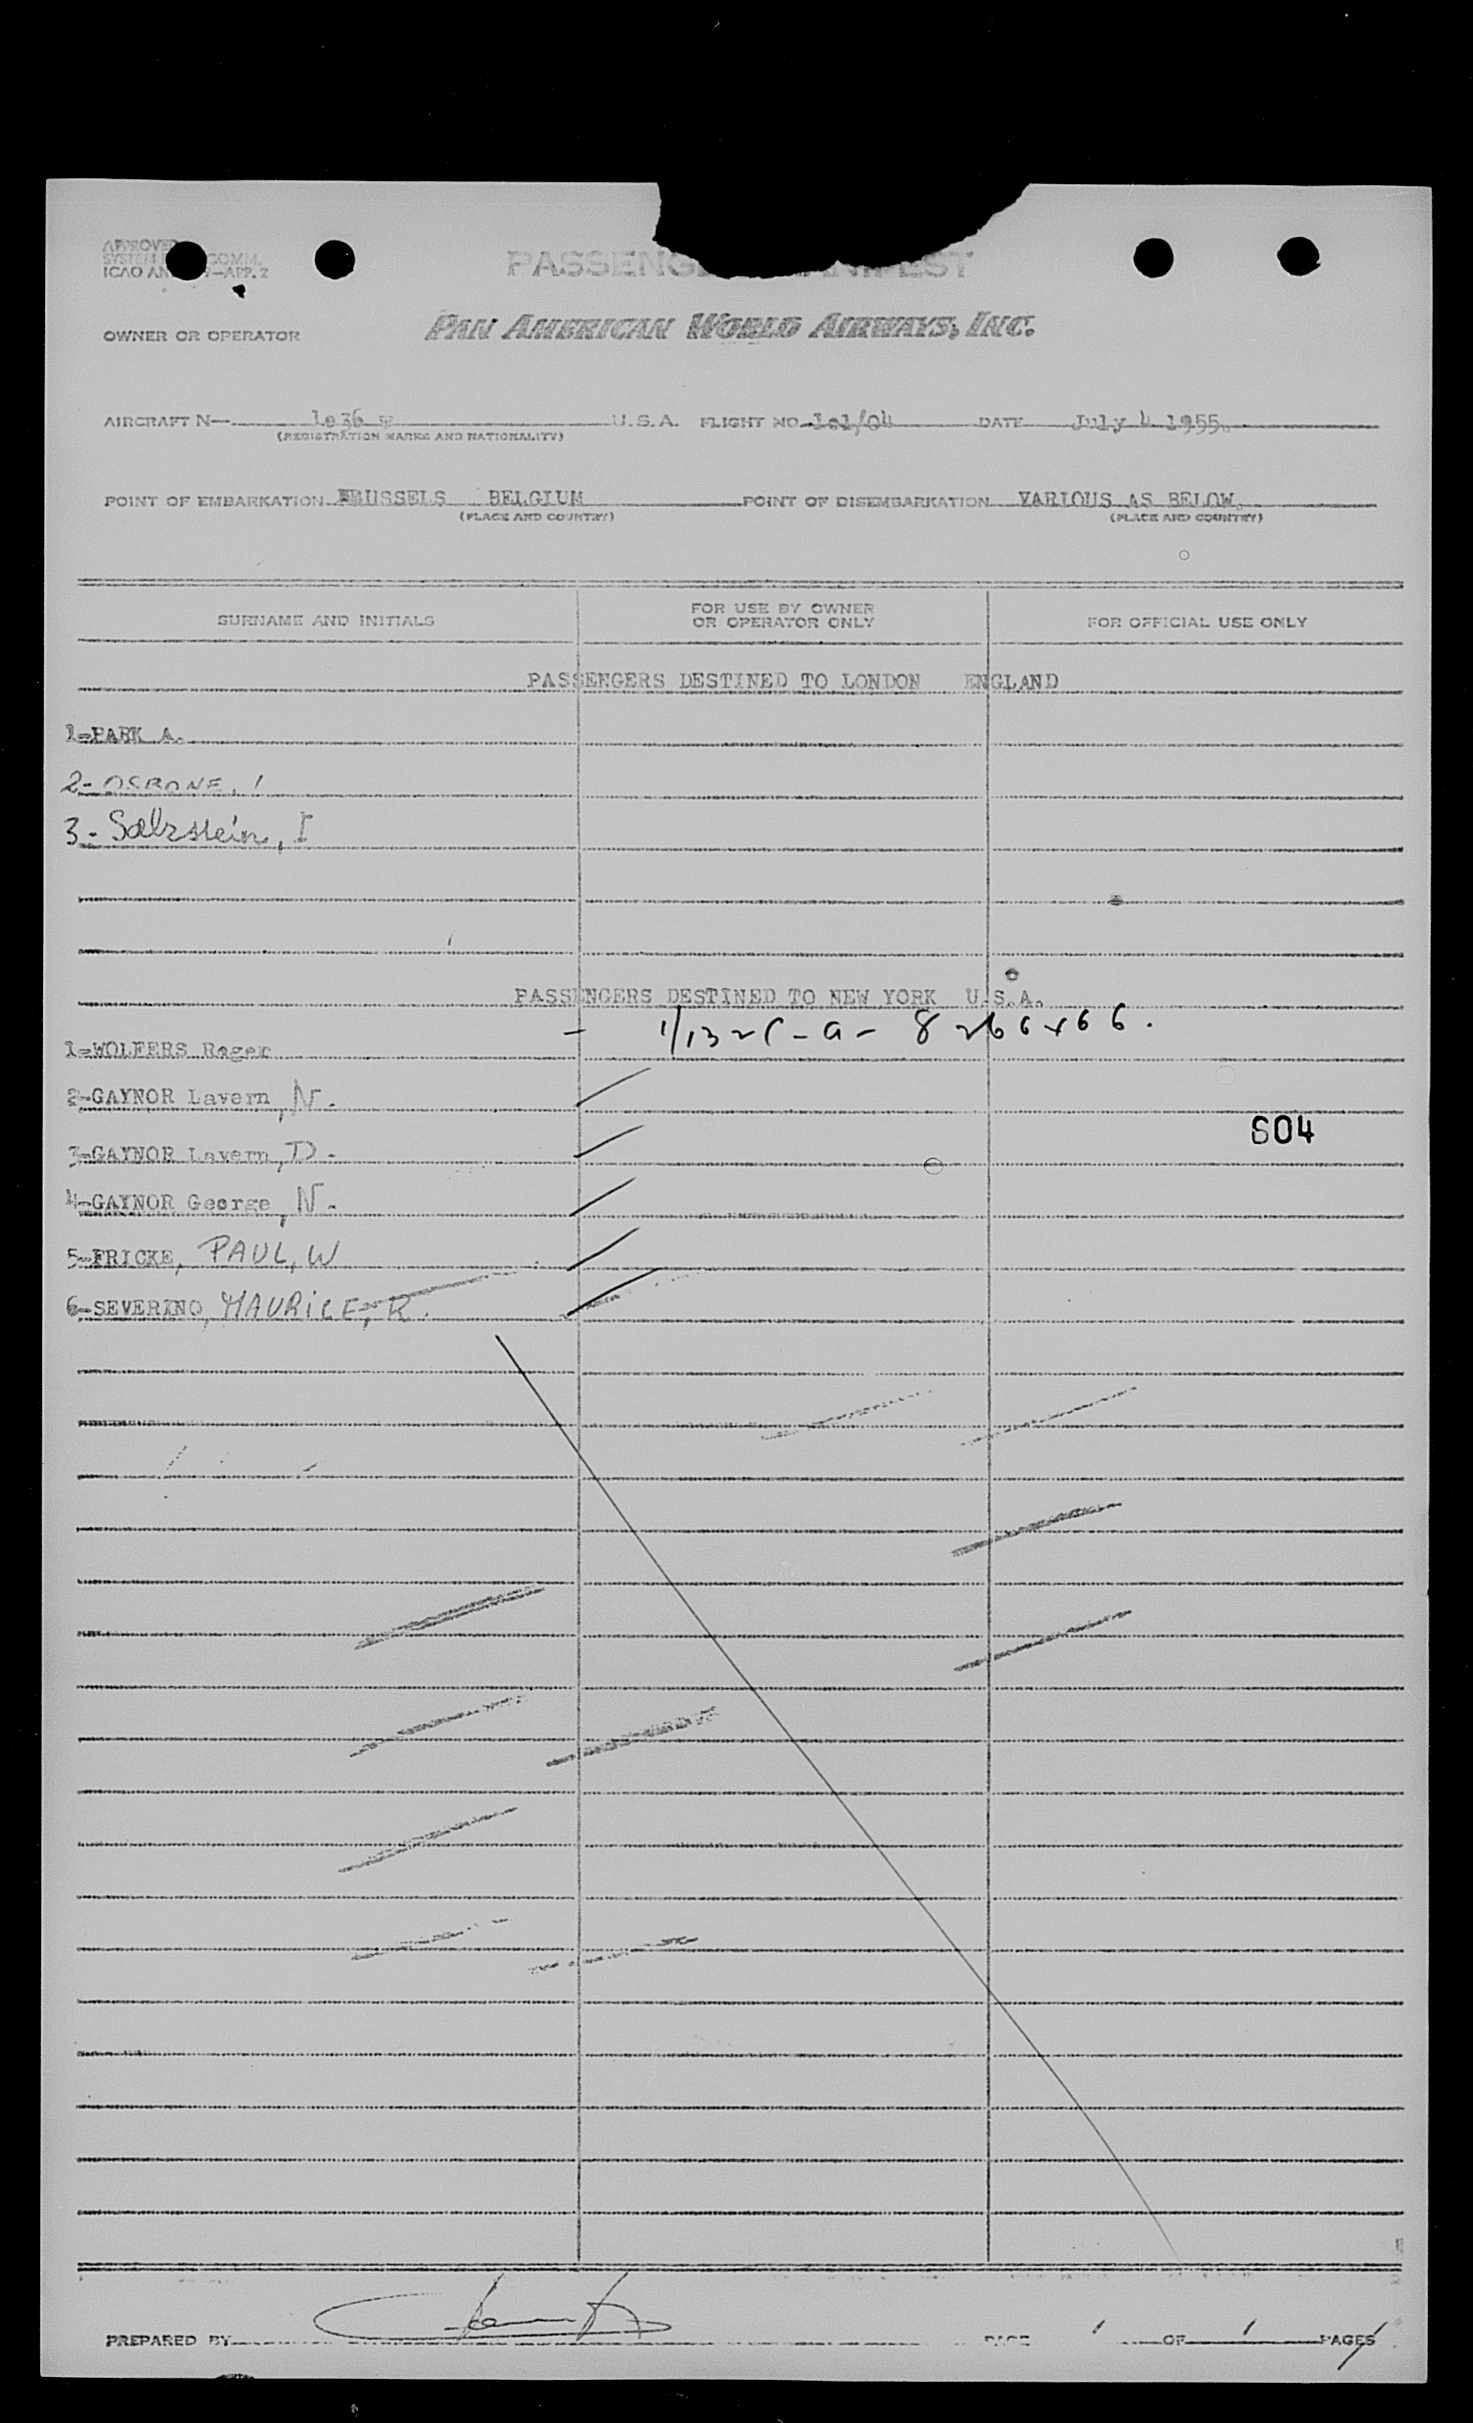 APPROVED
SYSTEM COMM.
ICAO AN 9—APP. 2
PASSENGER MANIFEST
OWNER OR OPERATOR PAN AMERICAN WORLD AIRWAYS, INC.
AIRCRAFT N— 1036 U.S.A. FLIGHT NO 101/04 DATE July 4 1955.
(REGISTRATION MARKS AND NATIONALITY)
POINT OF EMBARKATION BRUSSELS BELGIUM POINT OF DISEMBARKATION VARIOUS AS BELOW.
(PLACE AND COUNTRY) (PLACE AND COUNTRY)
SURNAME AND INITIALS FOR USE BY OWNER OR OPERATOR ONLY FOR OFFICIAL USE ONLY
PASSENGERS DESTINED TO LONDON ENGLAND
1-PARK A.
2- OSBONE, I
3- Salzstein, I
PASSENGERS DESTINED TO NEW YORK U.S.A.
1-WOLFERS Roger
2-GAYNOR Lavern, N.
604
3-GAYNOR Lavern, D.
4-GAYNOR George, N.
5-FRICKE, PAUL, W
6-SEVERINO, MAURICE, R.
PREPARED BY PAGE 1 OF 1 PAGES